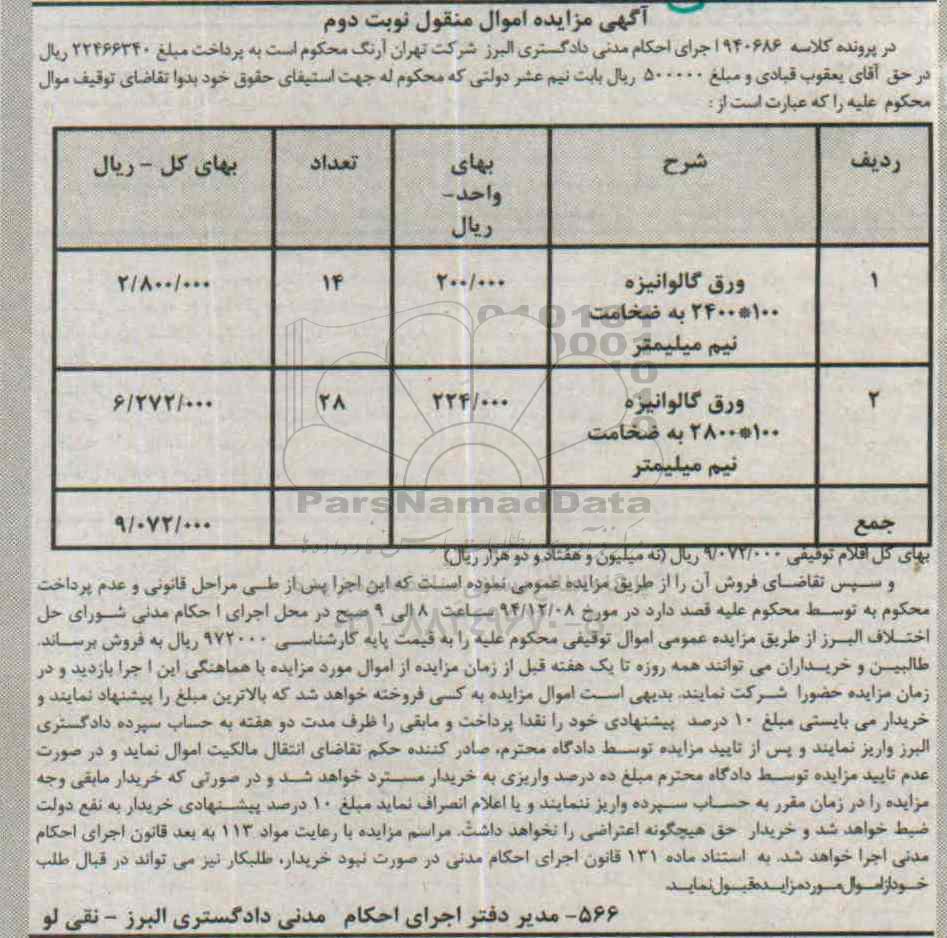 آگهی مزایده اموال منقول نوبت دوم
در پرونده کلاسه ۹۴۰۶۸۶ اجرای احکام مدنی دادگستری البرز شرکت تهران آرنگ محکوم است به پرداخت مبلغ ۲۲۴۶۶۳۴۰ ریال
در حق آقای یعقوب قبادی و مبلغ ۵۰۰۰۰۰ ریال بابت نیم عشر دولتی که محکوم له جهت استیفای حقوق خود بدوا تقاضای توقیف موال
محکوم علیه را که عبارت است از :
ردیف شرح بهای واحد- ریال تعداد بهای کل - ریال
۱ ورق گالوانیزه ۱۰۰*۲۴۰۰ به ضخامت نیم میلیمتر ۲۰۰/۰۰۰ ۱۴ ۲/۸۰۰/۰۰۰
۲ ورق گالوانیزه ۱۰۰*۲۸۰۰ به ضخامت نیم میلیمتر ۲۲۴/۰۰۰ ۲۸ ۶/۲۷۲/۰۰۰
جمع ۹/۰۷۲/۰۰۰
ParsNamadData
بهای کل اقلام توقیفی ۹/۰۷۲/۰۰۰ ریال (نه میلیون و هفتاد و دو هزار ریال)
و سپس تقاضای فروش آن را از طریق مزایده عمومی نموده است که این اجرا پس از طی مراحل قانونی و عدم پرداخت
محکوم به توسط محکوم علیه قصد دارد در مورخ ۹۴/۱۲/۰۸ ساعت ۸ الی ۹ صبح در محل اجرای ا حکام مدنی شورای حل
اختلاف البرز از طریق مزایده عمومی اموال توقیفی محکوم علیه را به قیمت پایه کارشناسی ۹۷۲۰۰۰ ریال به فروش برساند.
طالبین و خریداران می توانند همه روزه تا یک هفته قبل از زمان مزایده از اموال مورد مزایده با هماهنگی این ا جرا بازدید و در
زمان مزایده حضورا شرکت نمایند. بدیهی است اموال مزایده به کسی فروخته خواهد شد که بالاترین مبلغ را پیشنهاد نمایند و
خریدار می بایستی مبلغ ۱۰ درصد پیشنهادی خود را نقدا پرداخت و مابقی را ظرف مدت دو هفته به حساب سپرده دادگستری
البرز واریز نمایند و پس از تایید مزایده توسط دادگاه محترم، صادر کننده حکم تقاضای انتقال مالکیت اموال نماید و در صورت
عدم تایید مزایده توسط دادگاه محترم مبلغ ده درصد واریزی به خریدار مسترد خواهد شد و در صورتی که خریدار مابقی وجه
مزایده را در زمان مقرر به حساب سپرده واریز ننمایند و یا اعلام انصراف نماید مبلغ ۱۰ درصد پیشنهادی خریدار به نفع دولت
ضبط خواهد شد و خریدار حق هیچگونه اعتراضی را نخواهد داشت. مراسم مزایده با رعایت مواد ۱۱۳ به بعد قانون اجرای احکام
مدنی اجرا خواهد شد. به استناد ماده ۱۳۱ قانون اجرای احکام مدنی در صورت نبود خریدار، طلبکار نیز می تواند در قبال طلب
خود از اموال مورد مزایده قبول نماید.
۵۶۶- مدیر دفتر اجرای احکام مدنی دادگستری البرز - نقی لو